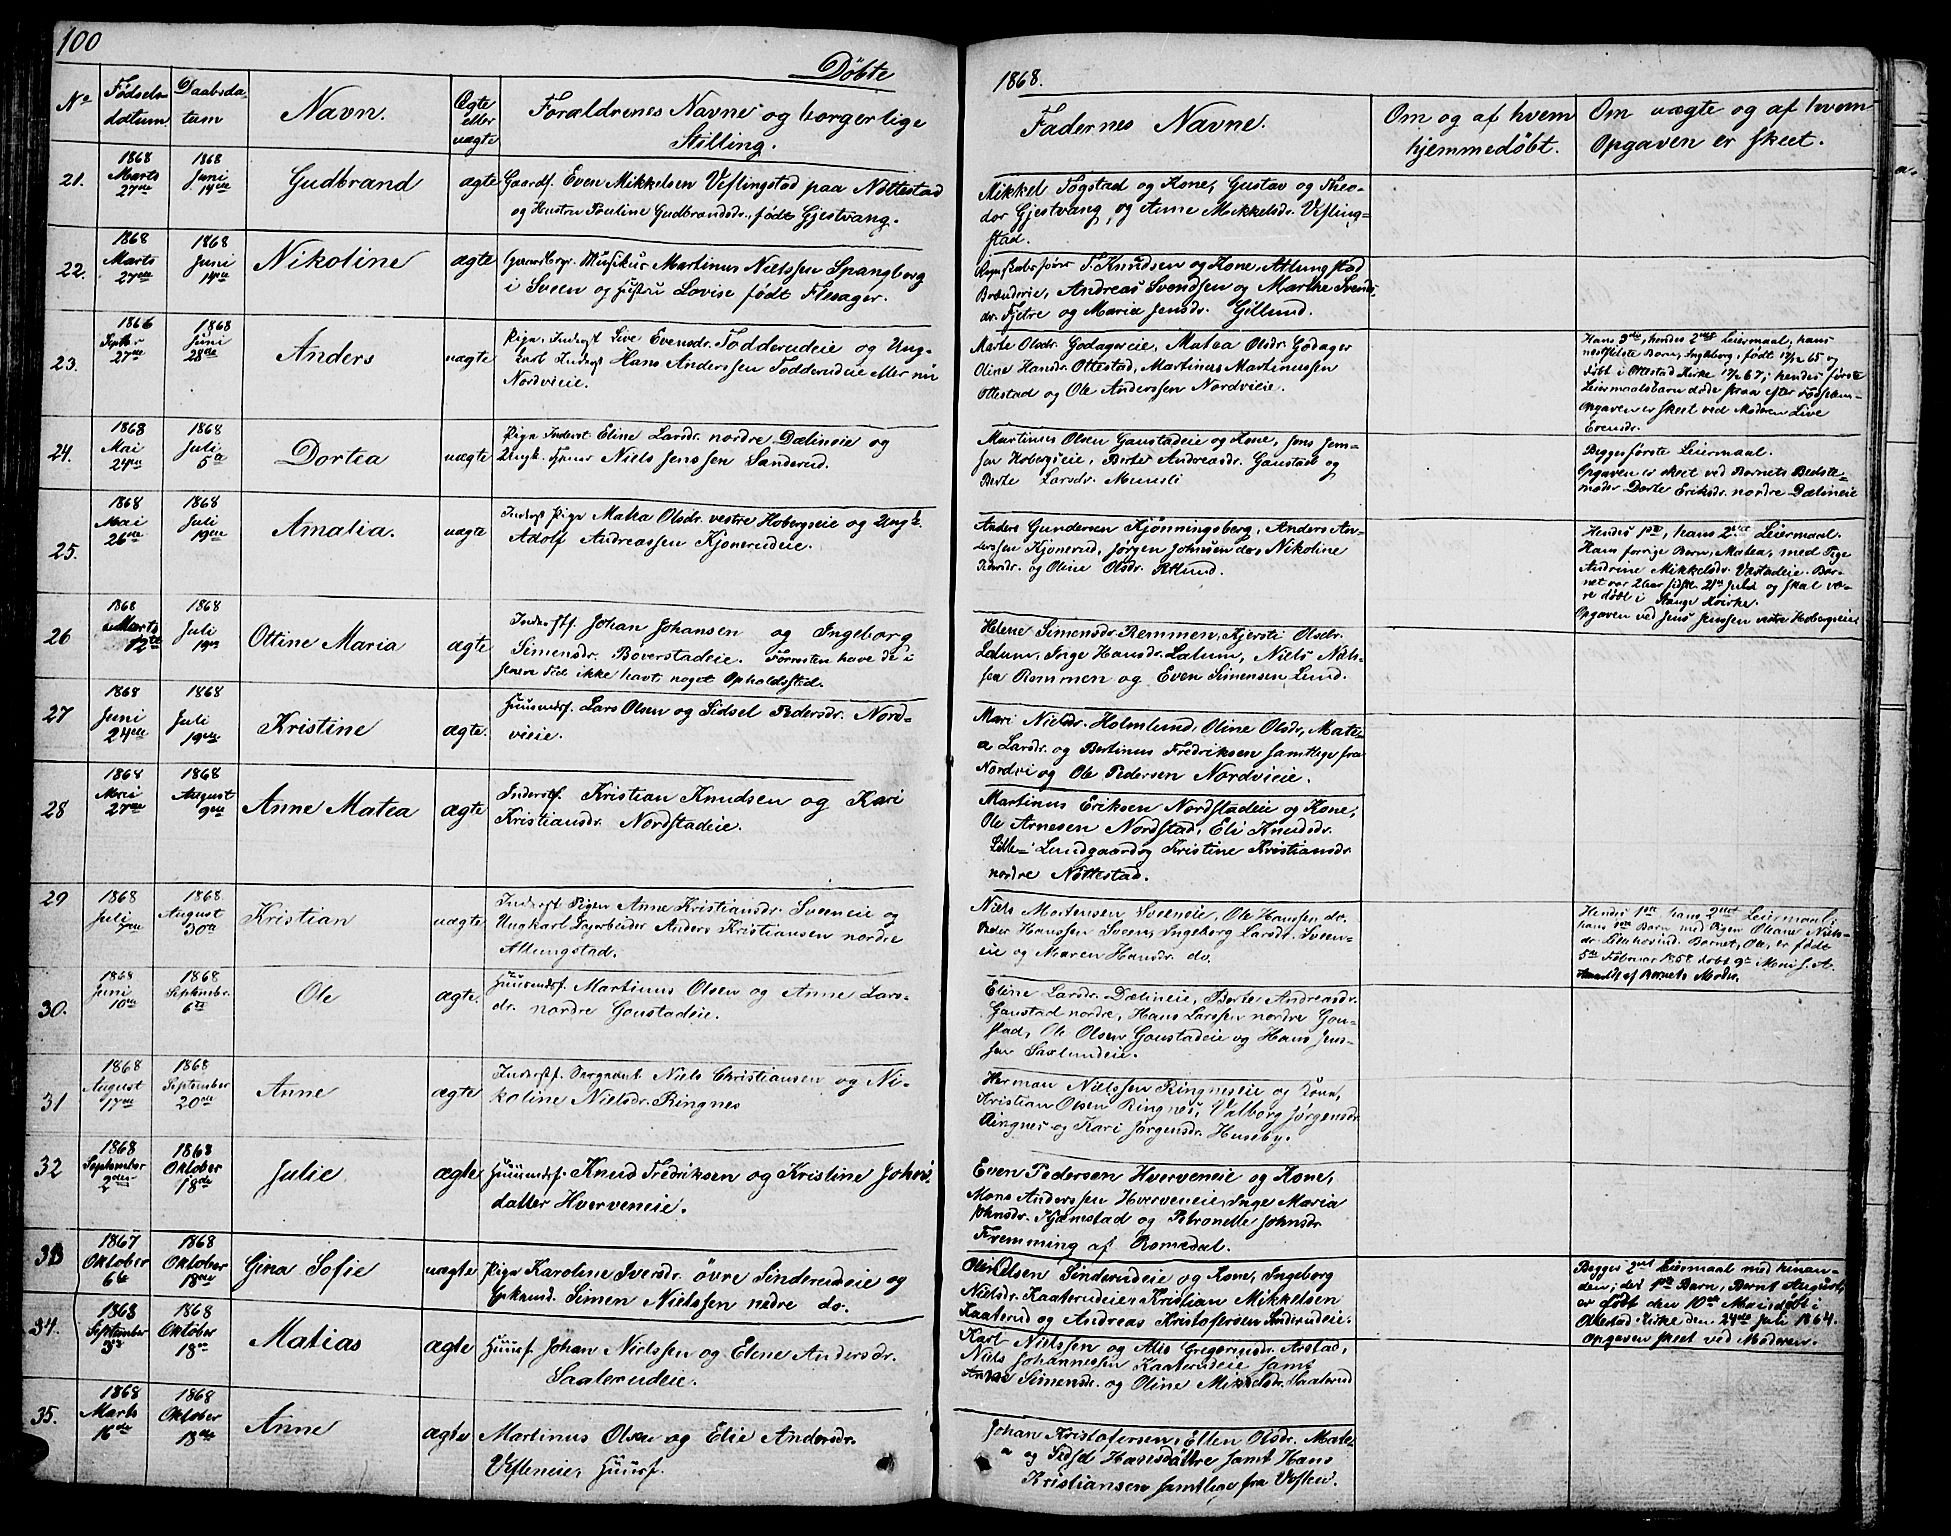 100
Døbte
1868.
No
Fødsels-
datum.
Daabsda-
tum
Navn.
Ægte
eller
uægte
Forældrenes Navne og borgerlige
Stilling.
Fadernes Navne.
Om og af hvem
hjemmedøbt.
Om uægte og af hvem
Opgaven er skeet.
21.
1868
Marts
27de
1868
Juni
14de
Gudbrand
ægte
Gaardf. Even Mikkelsen Vestingstad paa Nøttestad
og Hustru Pauline Gudbrandsdr. født Gjestvang.
Mikkel Fogstad og Kone, Gustav og Theo-
dor Gjestvang, og Anne Mikkelsdr. Vesting-
stad.
22.
1868
Marts
27de
1868
Juni
14de
Nikoline
ægte
Musikus Martinus Nielssen Spangberg
i Sveen og Hustru Lovise født Flesager.
T. Knudsen og Kone, Atlungstad
Brænderie, Andreas Svendsen og Marthe Svends-
dr. Fjetre og Maria Jensdr. Gillund.
23.
1866
Septbr
27de
1868
Juni
28de
Anders
uægte
Pige, Inderst Live Evensdr. Todderudeie og Ung-
karl Inderst Hans Anderssen Todderudeie eller nu
Nordvieie.
Marte Olsdr. Godagereie, Matea Olsdr. Godager
Oline Hansdr. Ottestad, Martinus Martinussen
Ottestad og Ole Anderssen Nordvieie.
Hans 3die, hendes 2det Leiermaal, hans
nestældste Barn, Ingeborg, født 17/12 65 og
døbt i Ottestad Kirke 17/2 67; hendes første
Leiermaalsbarn døde strax efter Fødselen-
Opgaven er skeet ved Moderen Live
Evensdr.
24.
1868
Mai
24de
1868
Juli
5te
Dortea
uægte
Pige Inderst Eline Larsdr. nordre Dælineie og
Ungk. Tjener Niels Jenssen Sanderud.
Martinus Olsen Gaustadeie og Kone, Jens Jens-
sen Hobergseie, Berte Andreasdr. Gaustad og
Berte Larsdr. Menneli
Begges første Leiermaal.
Opgaven er skeet ved Barnets Bedste-
moder Dorte Eriksdr. nordre Dælineie
25.
1868
Mai
26de
1868
Juli
19de
Amalia.
uægte
Inderst Pige Matea Olsdr. vestre Hobergseie og Ungk.
Adolf Andreassen Kjonerudeie.
Anders Gundersen Kjønningsberg, Anders An-
derssen Kjonerud, Jørgen Johnsen do, Nikoline
Pedersdr. og Oline Olsdr. Atlund.
Hendes 1ste, hans 2det Leiermaal.
Hans forrige Barn, Matea, med Pige
Andrine Mikkelsdr. Vestadeie. Bar-
net var 2 aar sidste 21de Juli og skal væ-
re døbt i Stange Kirke.
Opgaven ved Jens Jenssen vestre Hobergseie
26
1868
Marts
12te
1868
Juli
19de
Ottine Maria
ægte
Inderstf. Johan Johansen og Ingeborg
Simensdr. Boverstadeie. Forresten have de i
senere Tid ikke havt noget Opholdssted.
Helene Simensdr. Remmen, Kjersti Olsdr.
Latum, Inge Hansdr. Latum, Niels Niels-
sen Rommen og Even Simensen Lund.
27
1868
Juni
24de
1868
Juli
19de
Kristine
ægte.
Huusmdsf. Lars Olsen og Sidsel Pedersdr. Nord-
vieie.
Mari Nielsdr. Holmlund. Oline Olsdr, Mate-
a Larsdr. og Bertinus Fredriksen samtlige fra
Nordvi og Ole Pedersen Nordvieie.
28
1868
Mai
27de
1868
August
9de
Anne Matea
ægte
Inderstf. Kristian Knudsen og Kari
Kristiansdr. Nordstadeie.
Martinus Eriksen Nordstadeie og Kone,
Ole Arnesen Nordstad, Eli Knudsdr.
Lille-Lundgaard og Kristine Kristiansdr
nordre Nøttestad.
29
1868
Juli
1868.
August
30te
Kristian
uægte
Inderst Pigen Anne Kristiansdr. Sveeneie og
Ungkarl Lagarbeider Anders Kristiansen nordre
Atlungstad.
Niels Mortensen Sveeneie, Ole Hanssen do.
Peder Hanssen Sveen, Ingeborg Larsdr. Sveen-
eie og Maren Hansdr. do.
Hendes 1ste, hans 2det Leiermaal;
hans 1ste Barn med Pigen Oliane Niels-
dr. Barnet, Ole, er født
5te Februar 1858 døbt 9de Mai s. A.
Anmeldt af Barnets Moder.
30.
1868
Juni
10de
1868
Septembr.
6te
Ole
ægte.
Huusmdsf. Martinus Olsen og Anne Lars-
dr. nordre Gonstadeie.
Eline Larsdr. Dælineie, Berte Andreasdr.
Gaustad nordre, Hans Larssen nordre Gon-
stad, Ole Olsen Gonstadeie og Hans Jens-
sen Saxlundeie.
31
1868
August
17de
1868
September
20de
Anne
ægte
Inderstf. Sergeant Niels Christiansen og Ni-
koline Nielsdr. Ringnes
Herman Nielssen Ringneseie og Kone,
Kristian Olsen Ringnes, Valborg Jørgensdr
Ringnes og Kari Jørgensdr. Huseby.
32
1868
September
2den
1868
Oktober
18de
Julie
ægte
Huusmdsf. Knud Fredriksen og Kristine Johns-
datter Hverveneie.
Even Pedersen Hverveneie og Kone,
Mons Anderssen Hverveneie, Inge Maria
Johnsdr. Kjæmstad og Petronelle Johnsdr
Fremming af Romedal.
33
1867
Oktober
6te
1868
Oktober
18de
Gina Sofie
uægte
Pige Karoline Iversdr. øvre Sinderudeie og
Simen Nielssen nedre do.
Ole Olsen Sinderudeie og Kone, Ingeborg
Nielsdr. Kaaterudeie, Kristian Mikkelsen
Kaaterud og Andreas Kristofersen Sinderudeie.
Begges 2det Leiermaal med hinan-
den; det 1ste Barn, Bernt August,
er født den 10de Mai døbt i
Ottestad Kirke den 24de Juli 1864.
Opgaven skeet ved Moderen.
34.
1868
September
3die
1868
Oktober
18de
Matias
ægte
Huusf. Johan Nielssen og Elene Andersdr.
Saaterudeie.
Karl Nielssen og Alis Gregersdr. Arstad,
Niels Johannessen Kaaterudeie samt
Anne Simensdr. og Oline Mikkelsdr. Saaterud
35.
1868
Marts
16de
1868
Oktober
18de
Anne
ægte
Martinus Olsen og Elie Andersdr.
Vesteneie, Huusf.
Johan Kristofersen, Ellen Olsdr. Mate-
a og Sidsel Hansdøttre samt Hans
Kristiansen samtlige fra Vesten.